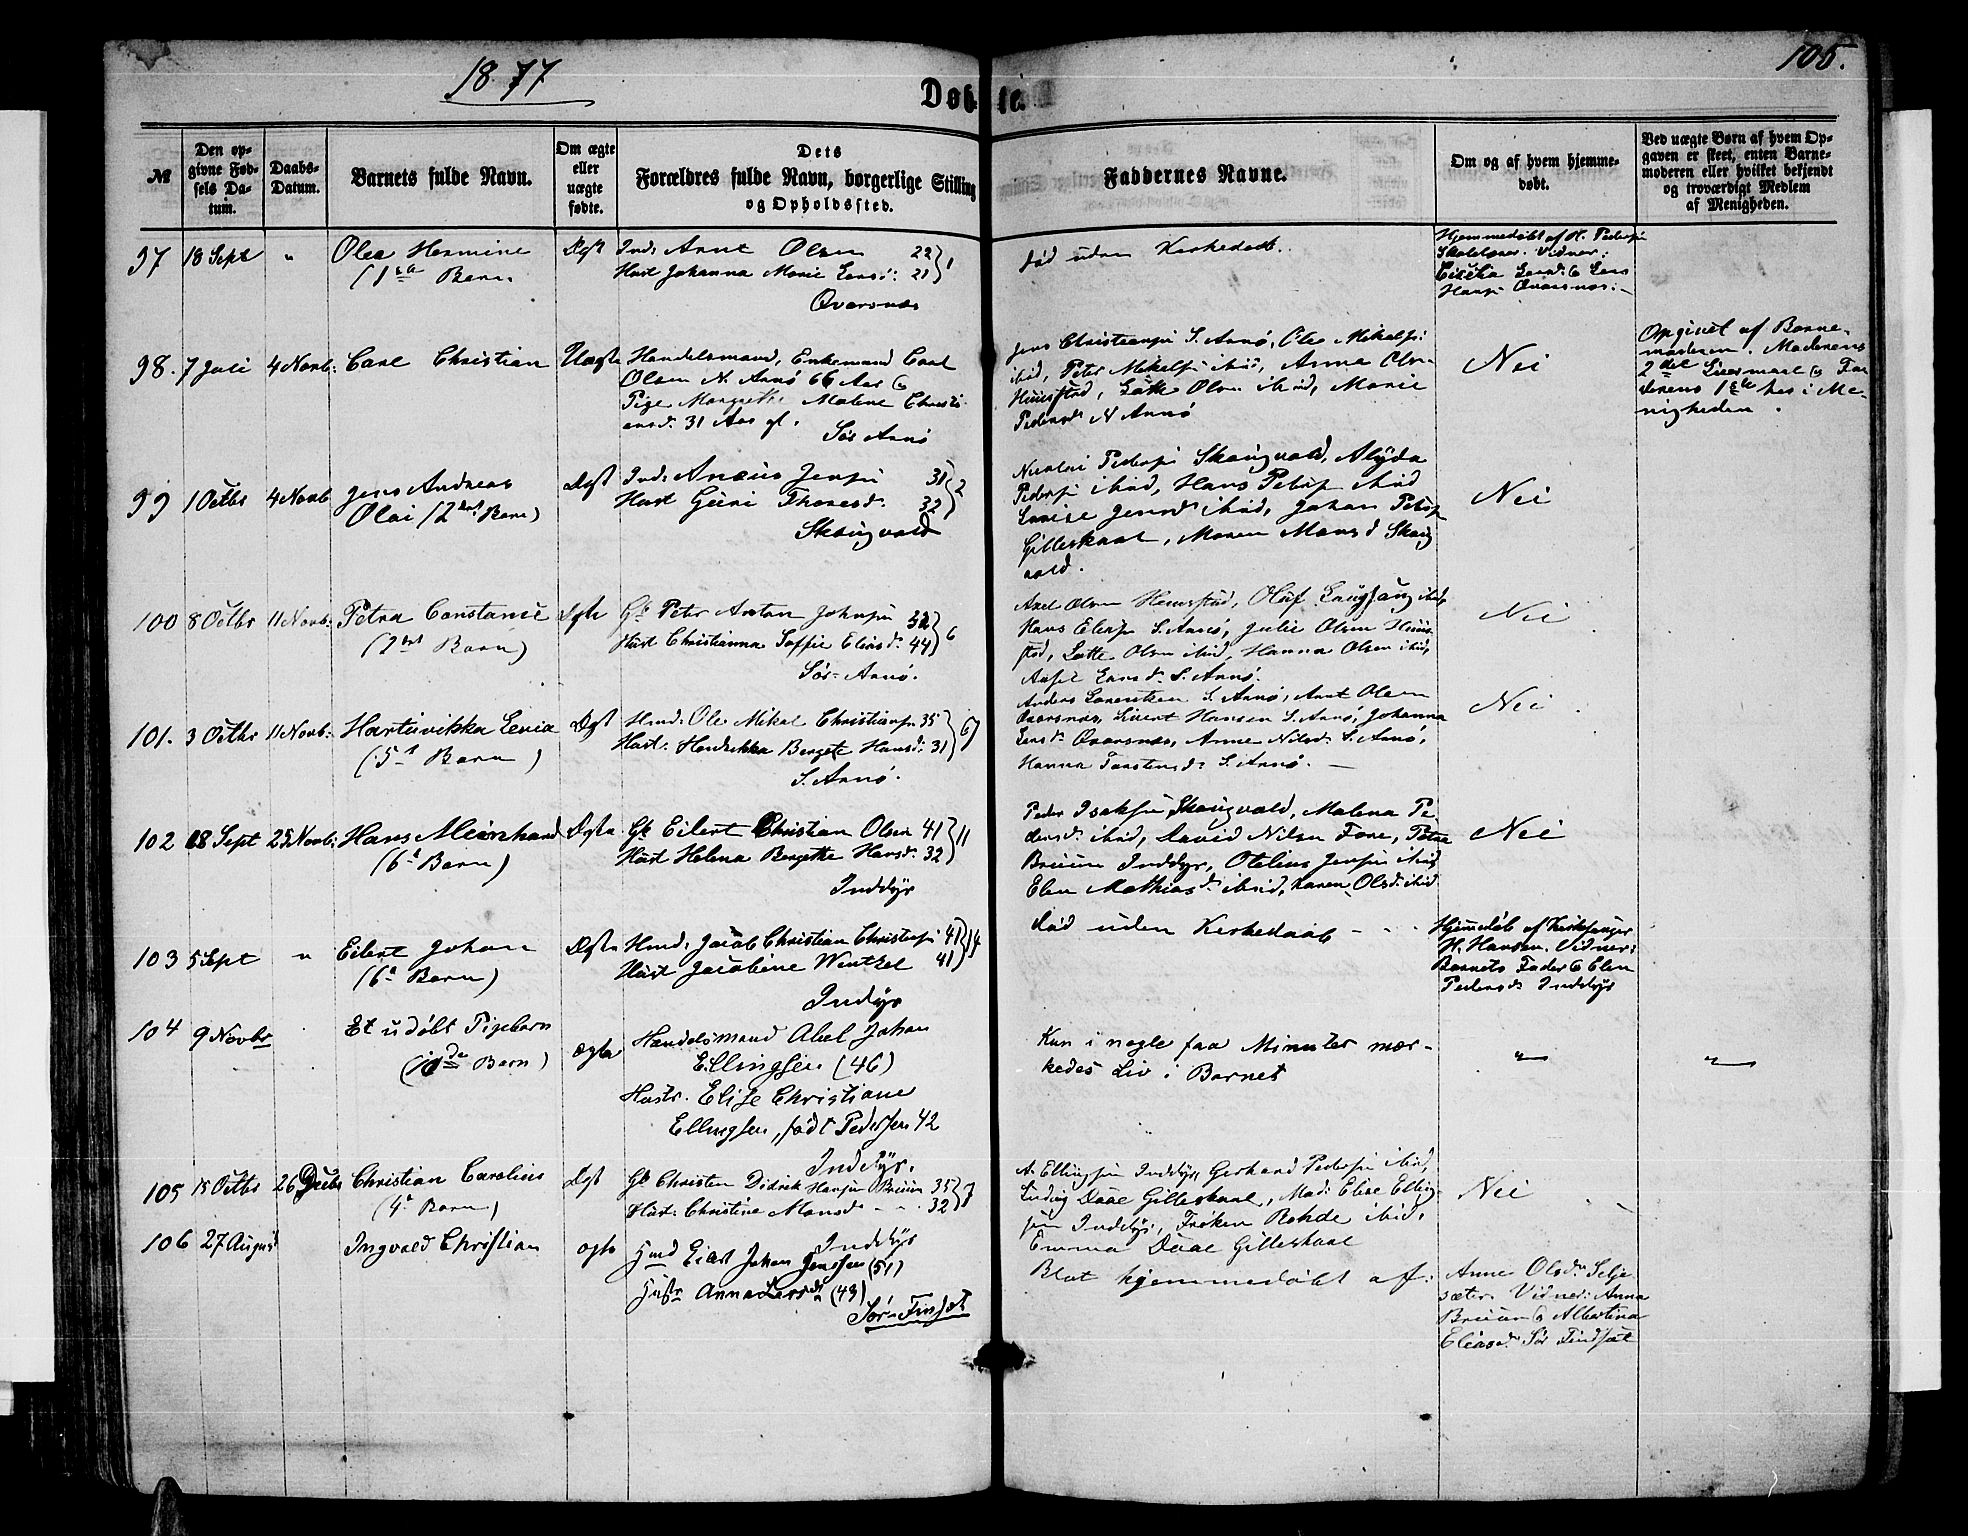 1877
Døbte.
105.
№
Den opgivne Fødsels Datum.
Daabs-Datum.
Barnets fulde Navn.
Om ægte eller uægte fødte.
Dets Forældres fulde Navn, borgerlige Stilling og Opholdssted.
Faddernes Navne.
Om og af hvem hjemmedøbt.
Ved uægte Børn af hvem Opgaven er skeet, enten Barnemoderen eller hvilket bekjendt og troværdigt Medlem af Menigheden.
97 18 Sept "
Olea Hermine
(1ste Barn)
Ind: Arne Olsen 22
Hust Johanna Marie Lensd: 21 } 1
Qvarsnæs
død uden Kirkedaab.
Hjemmedøbt af H. Peders:
Skolelærer. Vidner:
Hans: Qvarsnæs:
98. 7 Juli 4 Novb:
Carl Christian
Uægte
Handelsmand, Enkemand Carl
Olsen N. Arnø 66 Aar &
Pige Margrethe Malene Christi-
ansd: 31 Aar gl.
Sør Arnø
Jens Christians: S. Arnø, Ole Mikals:
ibid, Peter Mikals: ibid, Anne Olsn
Hunstad, Lotte Olsen ibid, Marie
Pedersd: N Arnø
Nei
Opgivet af Barne-
moderen. Moderens
2det Leiermaal & Fa-
derens 1ste her i Me-
nigheden.
99 1 Octbr 4 Novb
Jens Andreas
Olai (2det Barn)
Ægt
Ind: Anæus Jens: 31
Hust Guri Thoresd: 32 } 2
Skaugvold
Nicolai Peders: Skaugvold, Alyda
Peders: ibid, Hans Peters: ibid
Lovise Jensd: ibid, Johan Peters:
Gilleskaal, Maren Monsd Skaug
vold.
Nei
100 8 Octbr 11 Novb:
Petra Constance
(2det Barn)
Ægte
Gb Peter Anton Johns: 32
Hust Christianna Soffie Eliasd: 44 } 6
Sør-Arnø.
Axel Olsen Hunstad, Oluf ibid
Hans Elias: S. Arnø, Julie Olsen Hun-
stad, Lotte Olsen ibid, Hanna Olsen ibid,
S. Arnø.
Nei
101. 3 Octbr 11 Novb:
Hartvikka Levia
(5t Barn)
Ægt
Hmd: Ole Mikal Christians: 35
Hust: Hendrikka Bergete Hansd: 31 } 6
S. Arnø.
Anders Larentsen S. Arnø, Arnt Olsen
Qvarsnæs, Sivert Hansen S. Arnø, Johanna
Lensd: Qvarsnæs, Anne Nilsd: S. Arnø,
Hanna Torstensd: S. Arnø.
Nei
102 18 Sept 25 Novb:
Hans Meinhard
(6t Barn)
Ægte
Gb Eilert Christian Olsen 41
Hust Helena Bergethe Hansd: 32 } 11
Inddyr
Peder Isaks: Skaugvold, Malena Pe-
dersd: ibid, David Nilsen Fore, Petra
Bruun Inddyr, Otelius Jens: ibid,
Elen Mathiasd: ibid, Karen Olsd: ibid
Nei
103 5 Sept "
Eilert Johan
(6t Barn)
Ægte
Hmd: Jacob Christian Christens: 41
Hust Jacobine Wentzel 41 } 14
Indyr
død uden Kirkedaab
Hjemdøb af Kirkesanger
H. Hansen. Vidner:
Barnets Fader & Elen
Pedersd: Inddyr
104 9 Novbr
Et udøbt Pigebarn
(10de Barn)
ægte
Handelsmand Abel Johan
Ellingsen (46)
Hustr. Elise Christiane
Ellingsen, født Pedersen 42
Inddyr.
Kun i nogle faa Minuter mær-
kedes Liv i Barnet
" "
105 15 Octbr 26 Decbr
Christian Carolius
(4t Barn)
Ægt
Gb Christen Didrik Hans: Bruun 35
Hust: Christine Monsd: 32 } 7
Inddyr
A. Ellings: Inddyr, Gerhard Peders: ibid,
Ludvig Daae Gilleskaal, Mad: Elise Elling-
sen Inddyr, Frøken Rohde ibid,
Emma Daae Gilleskaal
Nei
106 27 August
Ingvald Christian
ægte
Hmd Johan Jenssen (51)
Hustr Anna Larsdtr (43)
Sør-Finset
Blot hjemmedøbt af:
Anne Olsdtr Selje-
sæter. Vidner: Anna
Bruun & Albertina
Eliasd: Sør Findsæt